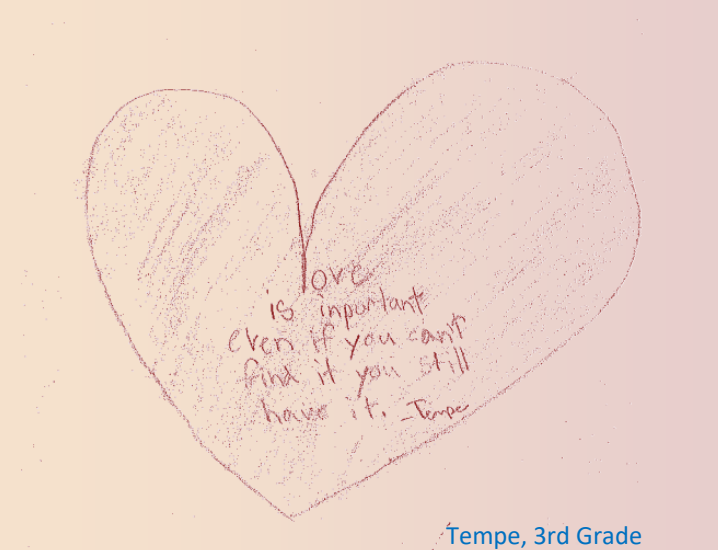 love
is inportant
even if you can't
find it you still
have it. -Tempe
Tempe, 3rd Grade